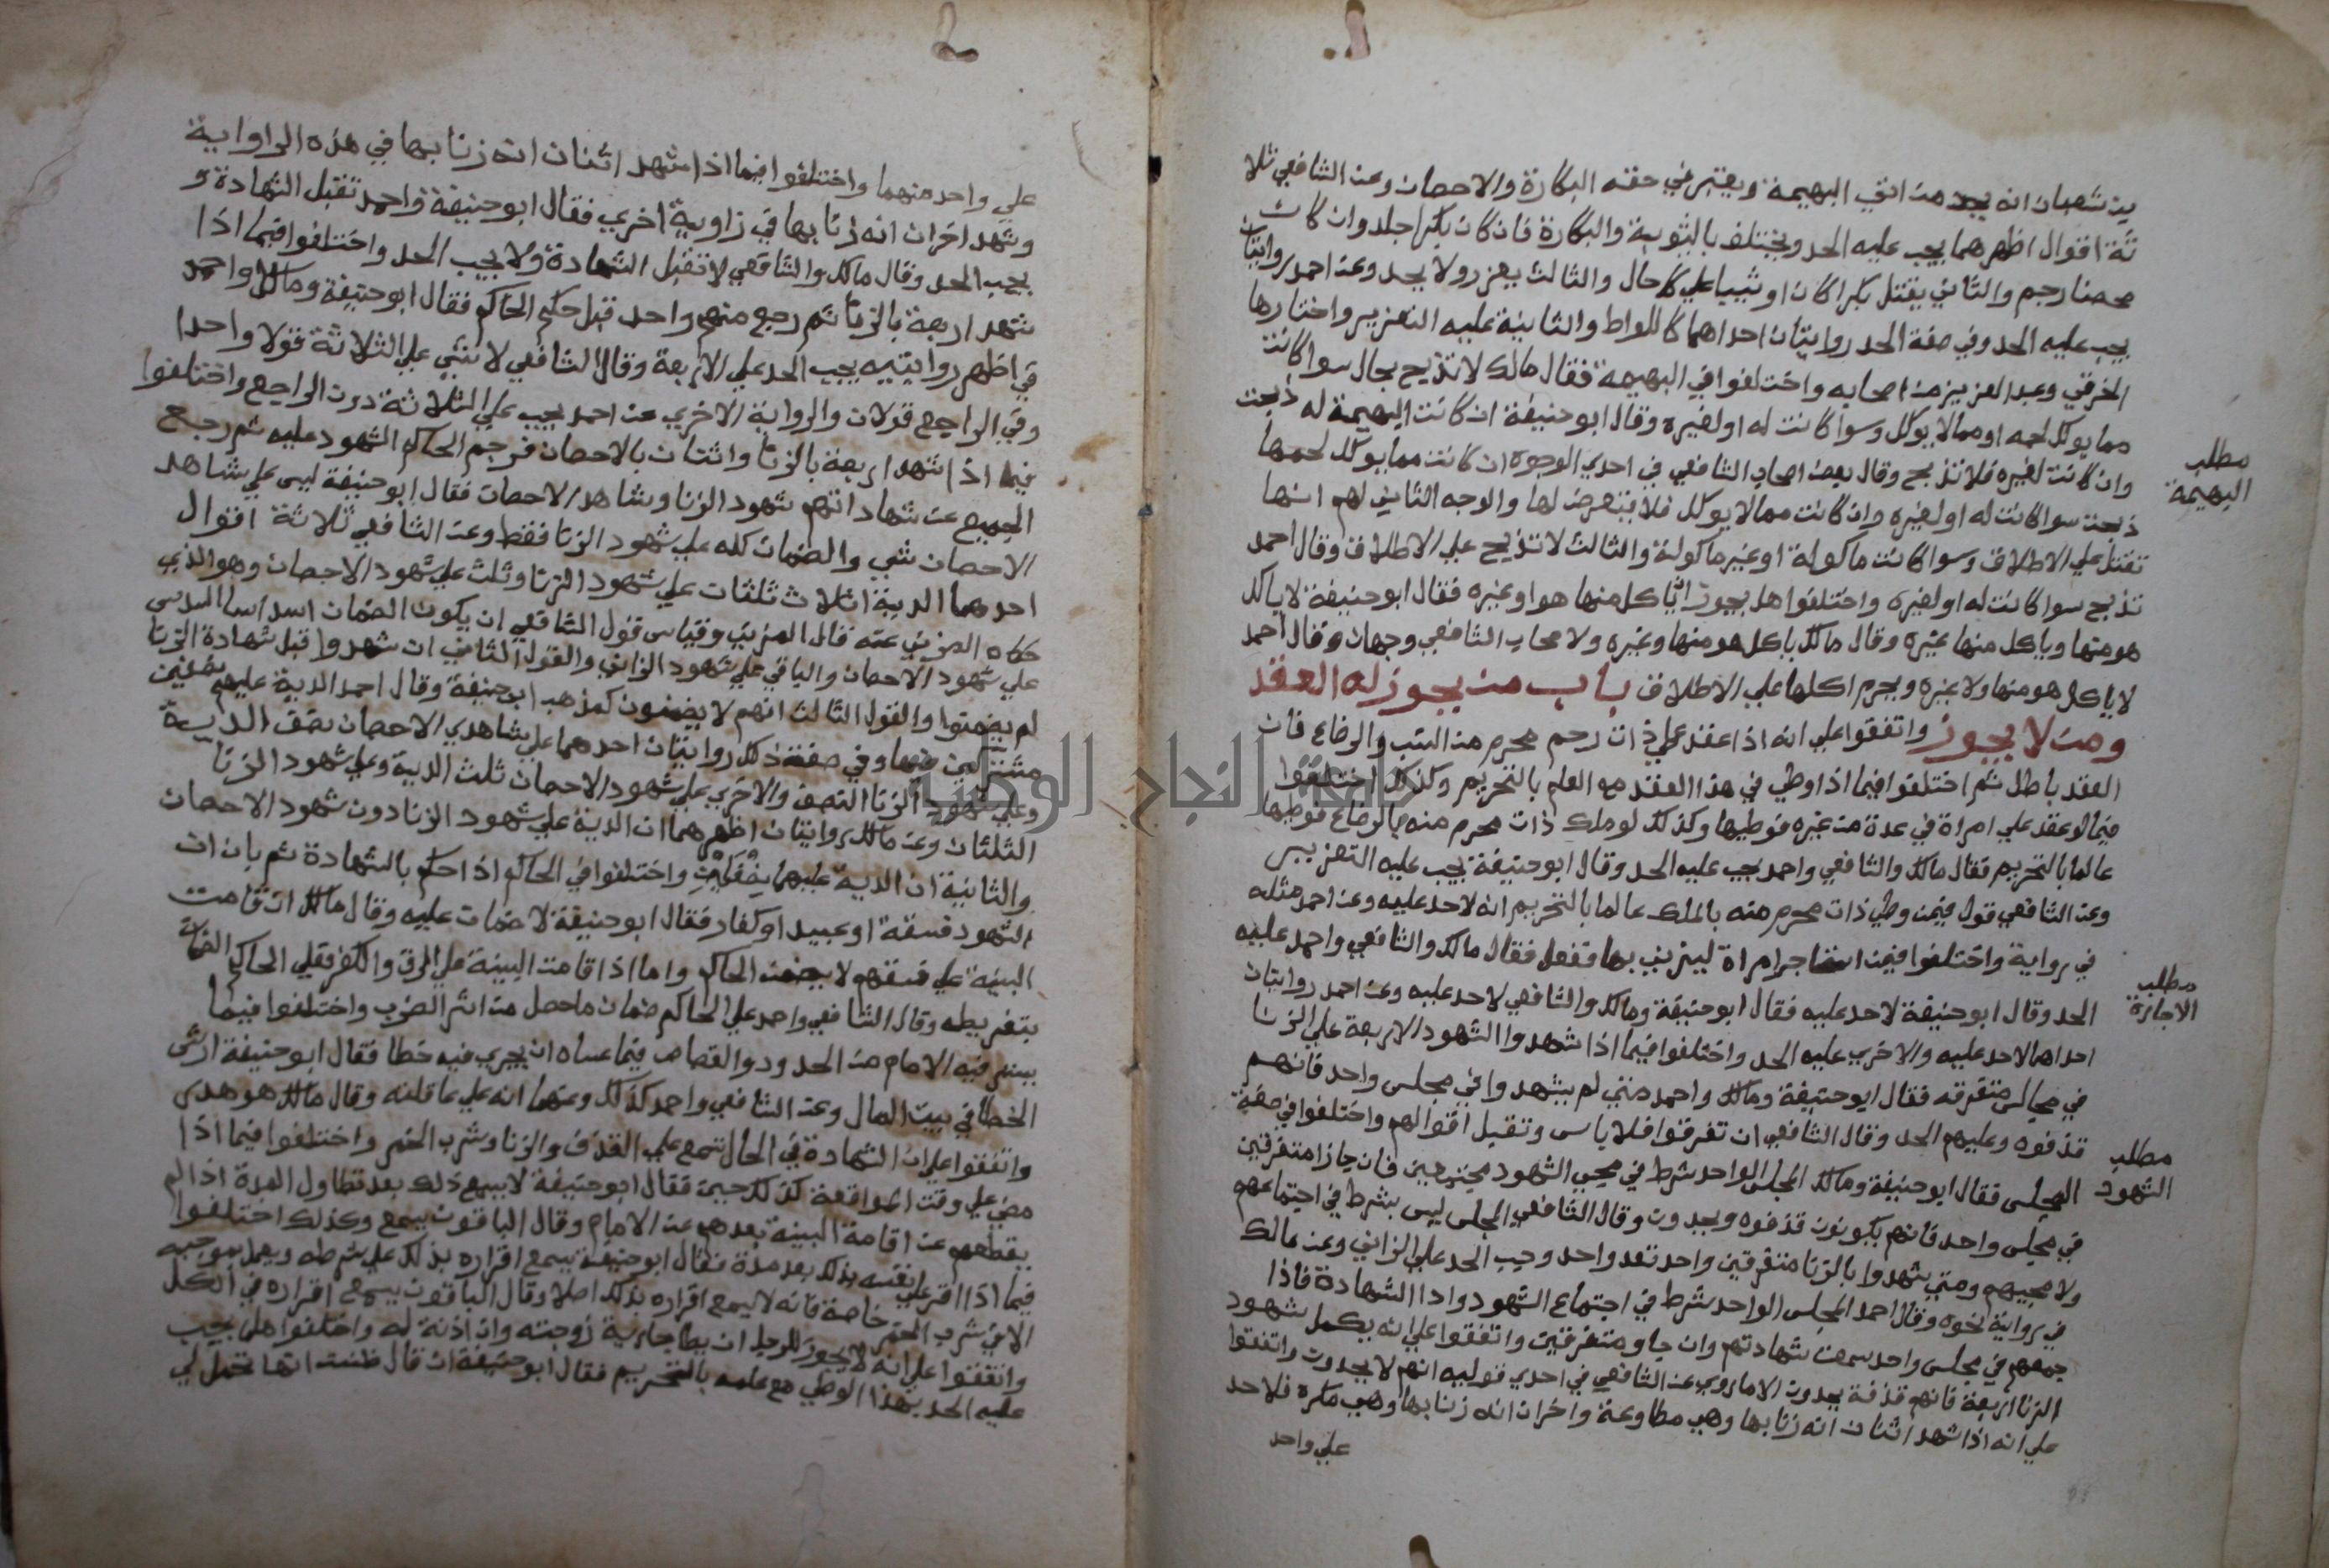 ين شعبان انه يجد من اتي البهيمة ويعتبر في حقه البكارة والاحصان وعن الشافعي ثلا
ثة اقوال اظهرهما يجب عليه الحد ويختلف بالثيوبة والبكارة فان كان بكرا جلد وان كان
محصنا رجم والثاني يقتل بكرا كان او ثيبا علي كل حال والثالث يعزر ولا يحد وعن احمد روايتان
يجب عليه الحد وفي صفة الحد روايتان احداهما كاللواط والثانية عليه التعزير واختارها
الخرقي وعبد العزيز من اصحابه واختلفوا في البهيمة فقال مالك لا تذبح بحال سوا كانت
مما يوكل لحمه او مما لا يوكل وسوا كانت له او لغيره وقال ابو حنيفة ان كانت البهيمة له ذبحت
وان كانت لغيره فلا تذبح وقال بعض اصحاب الشافعي في احدي الوجوه ان كانت مما يوكل لحمها
ذبحت سوا كانت له او لغيره وان كانت مما لا يوكل فلا يتعرض لها والوجه الثاني لهم انها
تقتل علي الاطلاق وسوا كانت ماكولة او غير ماكولة والثالث لا تذبح علي الاطلاق وقال احمد
تذبح سوا كانت له او لغيره واختلفوا هل يجوز ان ياكل منها هو او غيره فقال ابو حنيفة لا ياكل
هو منها وياكل منها غيره وقال مالك ياكل هو منها وغيره ولاصحاب الشافعي وجهان وقال احمد
لا ياكل هو منها ولا غيره ويحرم اكلها علي الاطلاق باب من يجوز له العقد
ومن لا يجوز واتفقوا علي انه اذا عقد علي ذات رحم محرم من النسب والرضاع فان
العقد باطل ثم اختلفوا فيما اذا وطي في هذا العقد مع العلم بالتحريم وكذلك اختلفوا
فيما لو عقد علي امراة في عدة من غيره فوطيها وكذلك لو ملك ذات محرم منه بالرضاع فوطيها
عالما بالتحريم فقال مالك والشافعي واحمد يجب عليه الحد وقال ابو حنيفة يجب عليه التعزير
وعن الشافعي قول فيمن وطي ذات محرم منه بالملك عالما بالتحريم انه لا حد عليه وعن احمد مثله
في رواية واختلفوا فيمن استاجر امراة ليزني بها ففعل فقال مالك والشافعي واحمد عليه
الحد وقال ابو حنيفة لا حد عليه فقال ابو حنيفة ومالك والشافعي لا حد عليه وعن احمد روايتان
احداهما لا حد عليه والاخري عليه الحد واختلفوا فيما اذا شهدوا الشهود الاربعة علي الزنا
في مجالس متفرقه فقال ابو حنيفة ومالك واحمد متي لم يشهدوا في مجلس واحد فانهم
قذفوه وعليهم الحد وقال الشافعي ان تفرقوا فلا باس وتقبل اقوالهم واختلفوا في صفة
المجلس فقال ابو حنيفة ومالك المجلس الواحد شرط في مجي الشهود مجتمعين فان جازا متفرقين
في مجلس واحد فانهم يكونون قذفوه ويجدون وقال الشافعي المجلس ليس بشرط في اجتماعهم
ولا مجيهم ومتي شهدوا بالزنا متفرقين واحد بعد واحد وجب الحد علي الزاني وعن مالك
في رواية نحوه وقال احمد المجلس الواحد شرط في اجتماع الشهود وادا الشهادة فاذا
جمعهم في مجلس واحد سمعت شهادتهم وان جاو متفرقين واتفقوا علي انه يكمل شهود
الزنا اربعة فانهم قذفة يحدون الا ما روي عن الشافعي في احدي قوليه انهم لا يحدون واتفقوا
علي انه اذا شهد اثنان انه زنا بها وهي مطاوعة واخران انه زنا بها وهي مكره فلا حد
علي واحد
مطلب
البهيمة
مطلب
الاجارة
مطلب
الشهود
علي واحد منهما واختلفوا فيما اذا شهد اثنان انه زنا بها في هذه الراواية
وشهد اخران انه زنا بها في زاوية اخري فقال ابو حنيفة واحمد تقبل الشهادة و
يجب الحد وقال مالك والشافعي لا تقبل الشهادة ولا يجب الحد واختلفوا فيما اذا
شهد اربعة بالزنا ثم رجع منهم واحد قبل حكم الحاكم فقال ابو حنيفة ومالك واحمد
في اظهر روايتيه يجب الحد علي الاربعة وقال الشافعي لا شي علي الثلاثة قولا واحدا
وفي الراجع قولان والرواية الاخري عن احمد يجب علي الثلاثة دون الراجع واختلفوا
فيما اذا شهد اربعة بالزنا واثنان بالاحصان فرجم الحاكم الشهود عليه ثم رجع
الجميع عن شهاداتهم شهود الزنا وشاهد الاحصان فقال ابو حنيفة ليس علي شاهد
الاحصان شي والضمان كله علي شهود الزنا فقط وعن الشافعي ثلاثة اقوال
احدهما الدية اثلاث ثلثان علي شهود الزنا وثلث علي شهود الاحصان وهو الذي
حكاه المزني عنه قال المزني وقياس قول الشافعي ان يكون الضمان اسداسا السدس
علي شهود الاحصان والباقي علي شهود الزاني والقول الثاني ان شهدوا قبل شهادة الزنا
لم يضمنوا والقول الثالث انهم لا يضمنون كمذهب ابي حنيفة وقال احمد الدية عليهم
مشتركين فيها وفي صفة ذلك روايتان احدهما علي شاهدي الاحصان نصف الدية
وعلي شهود الزنا النصف والاخري علي شهود الاحصان ثلث الدية وعلي شهود الزنا
الثلثان وعن مالك روايتان اظهرهما ان الدية علي شهود الزنا دون شهود الاحصان
والثانية ان الدية عليهما واختلفوا في الحاكم اذا حكم بالشهادة ثم بان ان
الشهود فسقة او عبيد او كفار فقال ابو حنيفة لا ضمان عليه وقال مالك ان قامت
البينة علي فسقهم لا يضمن الحاكم واما اذا قامت البينة علي الرق والكفر فعلي الحاكم الضمان
بتفريطه وقال الشافعي واحمد علي الحاكم ضمان ما حصل من اثر الضرب واختلفوا فيما
يستوفيه الامام من الحدود والقصاص فيما عساه ان يجري فيه خطا فقال ابو حنيفة ارش
الخطا في بيت المال وعن الشافعي واحمد كذلك وعنهما انه علي عاقلته وقال مالك هو هدر
واتفقوا علي ان الشهادة في الحال تسمع علي القذف والزنا وشرب الخمر واختلفوا فيما اذا
مضي علي وقت المواقعة كذلك حين فقال ابو حنيفة لا يسمع ذلك بعد تطاول المدة اذا لم
يقطعهم عن اقامة البينة بعدهم عن الامام وقال الباقون يسمع وكذلك اختلفوا
فيما اذا اقر علي نفسه بذلك بعد مدة فقال ابو حنيفة يسمع اقراره بذلك علي شرطه ويعمل بموجبه
الا في شرب الخمر خاصة فانه لا يسمع اقراره بذلك اصلا وقال الباقون يسمع اقراره في الكل
واتفقوا علي انه لا يجوز للرجل ان يطا جارية زوجته وان اذنة له واختلفوا هل يجب
عليه الحد بهذا الوطي مع علمه بالتحريم فقال ابو حنيفة ان قال ظننت انها تحل لي
جامعة النجاح الوطنية